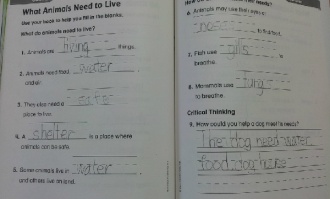 What Animals Need to Live
Use your book to help you fill in the blanks.
What do animals need to live?
1. Animals are living things.
2. Animals need food, water
and air.
3. They also need a
place to live.
4. A shelter is a place where
animals can be safe.
5. Some animals live in water
and others live on land.
6. Animals may use their
to find food.
7. Fish use gills to
breathe.
8. Mammals use lung
to breathe.
Critical Thinking
9. How could you help a dog meet its needs?
The dog need water
food, dog house